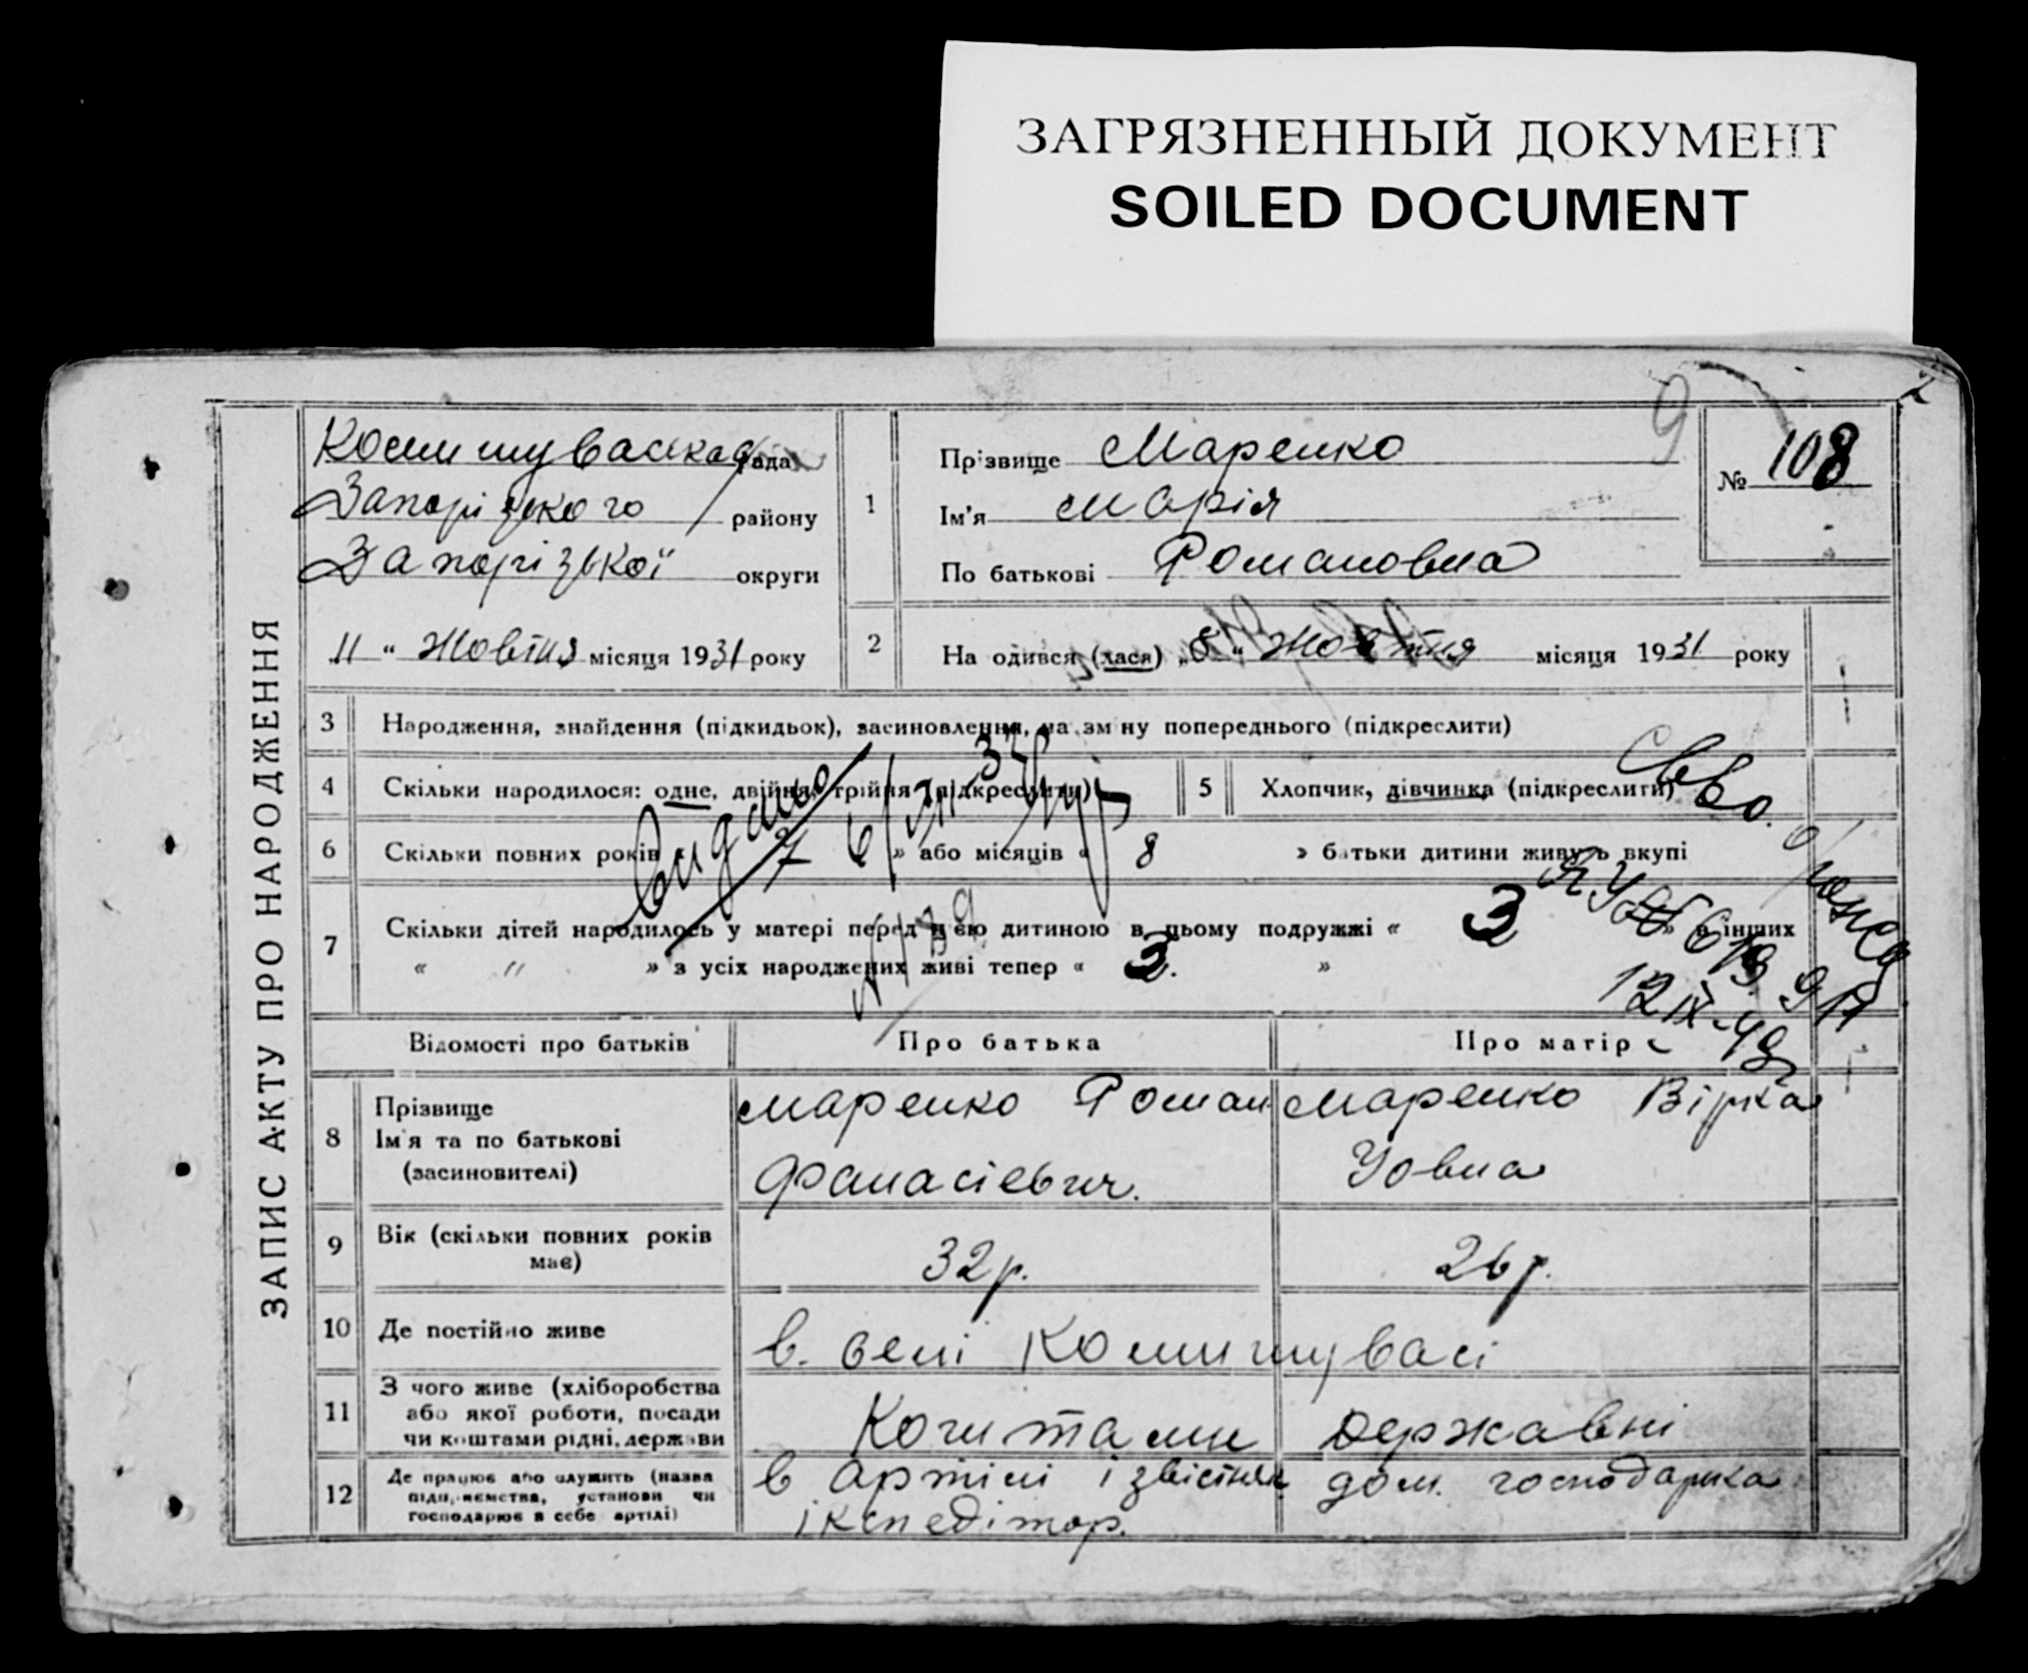 ЗАГРЯЗНЕННЫЙ ДОКУМЕНТ
SOILED DOCUMENT
ЗАПИС АКТУ ПРО НАРОДЖЕННЯ
9
2
Комишуваська рада
Запорізького району
Запорізької округи
„11“ Жовтня місяця 1931 року
1
Прізвище Маренко
Ім'я Марія
По батькові Романовна
№ 108
2 На одився (лася) „8“ жовтня місяця 1931 року
3 Народження, знайдення (підкидьок), засиновлення, на зм ну попереднього (підкреслити)
4 Скільки народилося: одне, двійня, трійня (підкреслити)
5 Хлопчик, дівчинка (підкреслити)
6 Скільки повних років « 7 » або місяців « 8 » батьки дитини живуть вкупі
7 Скільки дітей народилось у матері перед цією дитиною в цьому подружжі « 3 » в інших
« " » з усіх народжених живі тепер « 3. »
Видано
Свво.
12 IX-48
Відомості про батьків
Про батька
Про матір
8 Прізвище
Ім'я та по батькові
(засиновителі)
Маренко Роман
Фанасієвич.
Маренко Вірка
Уовна
9 Вік (скільки повних років
має)
32 р.
26 р.
10 Де постійно живе
в. селі Комишувасі
11 З чого живе (хліборобства
або якої роботи, посади
чи коштами рідні, держави
Коштами Державні
12 Де працює або служить (назва
підприємства, установи чи
господарює в себе артілі)
в артілі
ікспедітор.
дом. господарка